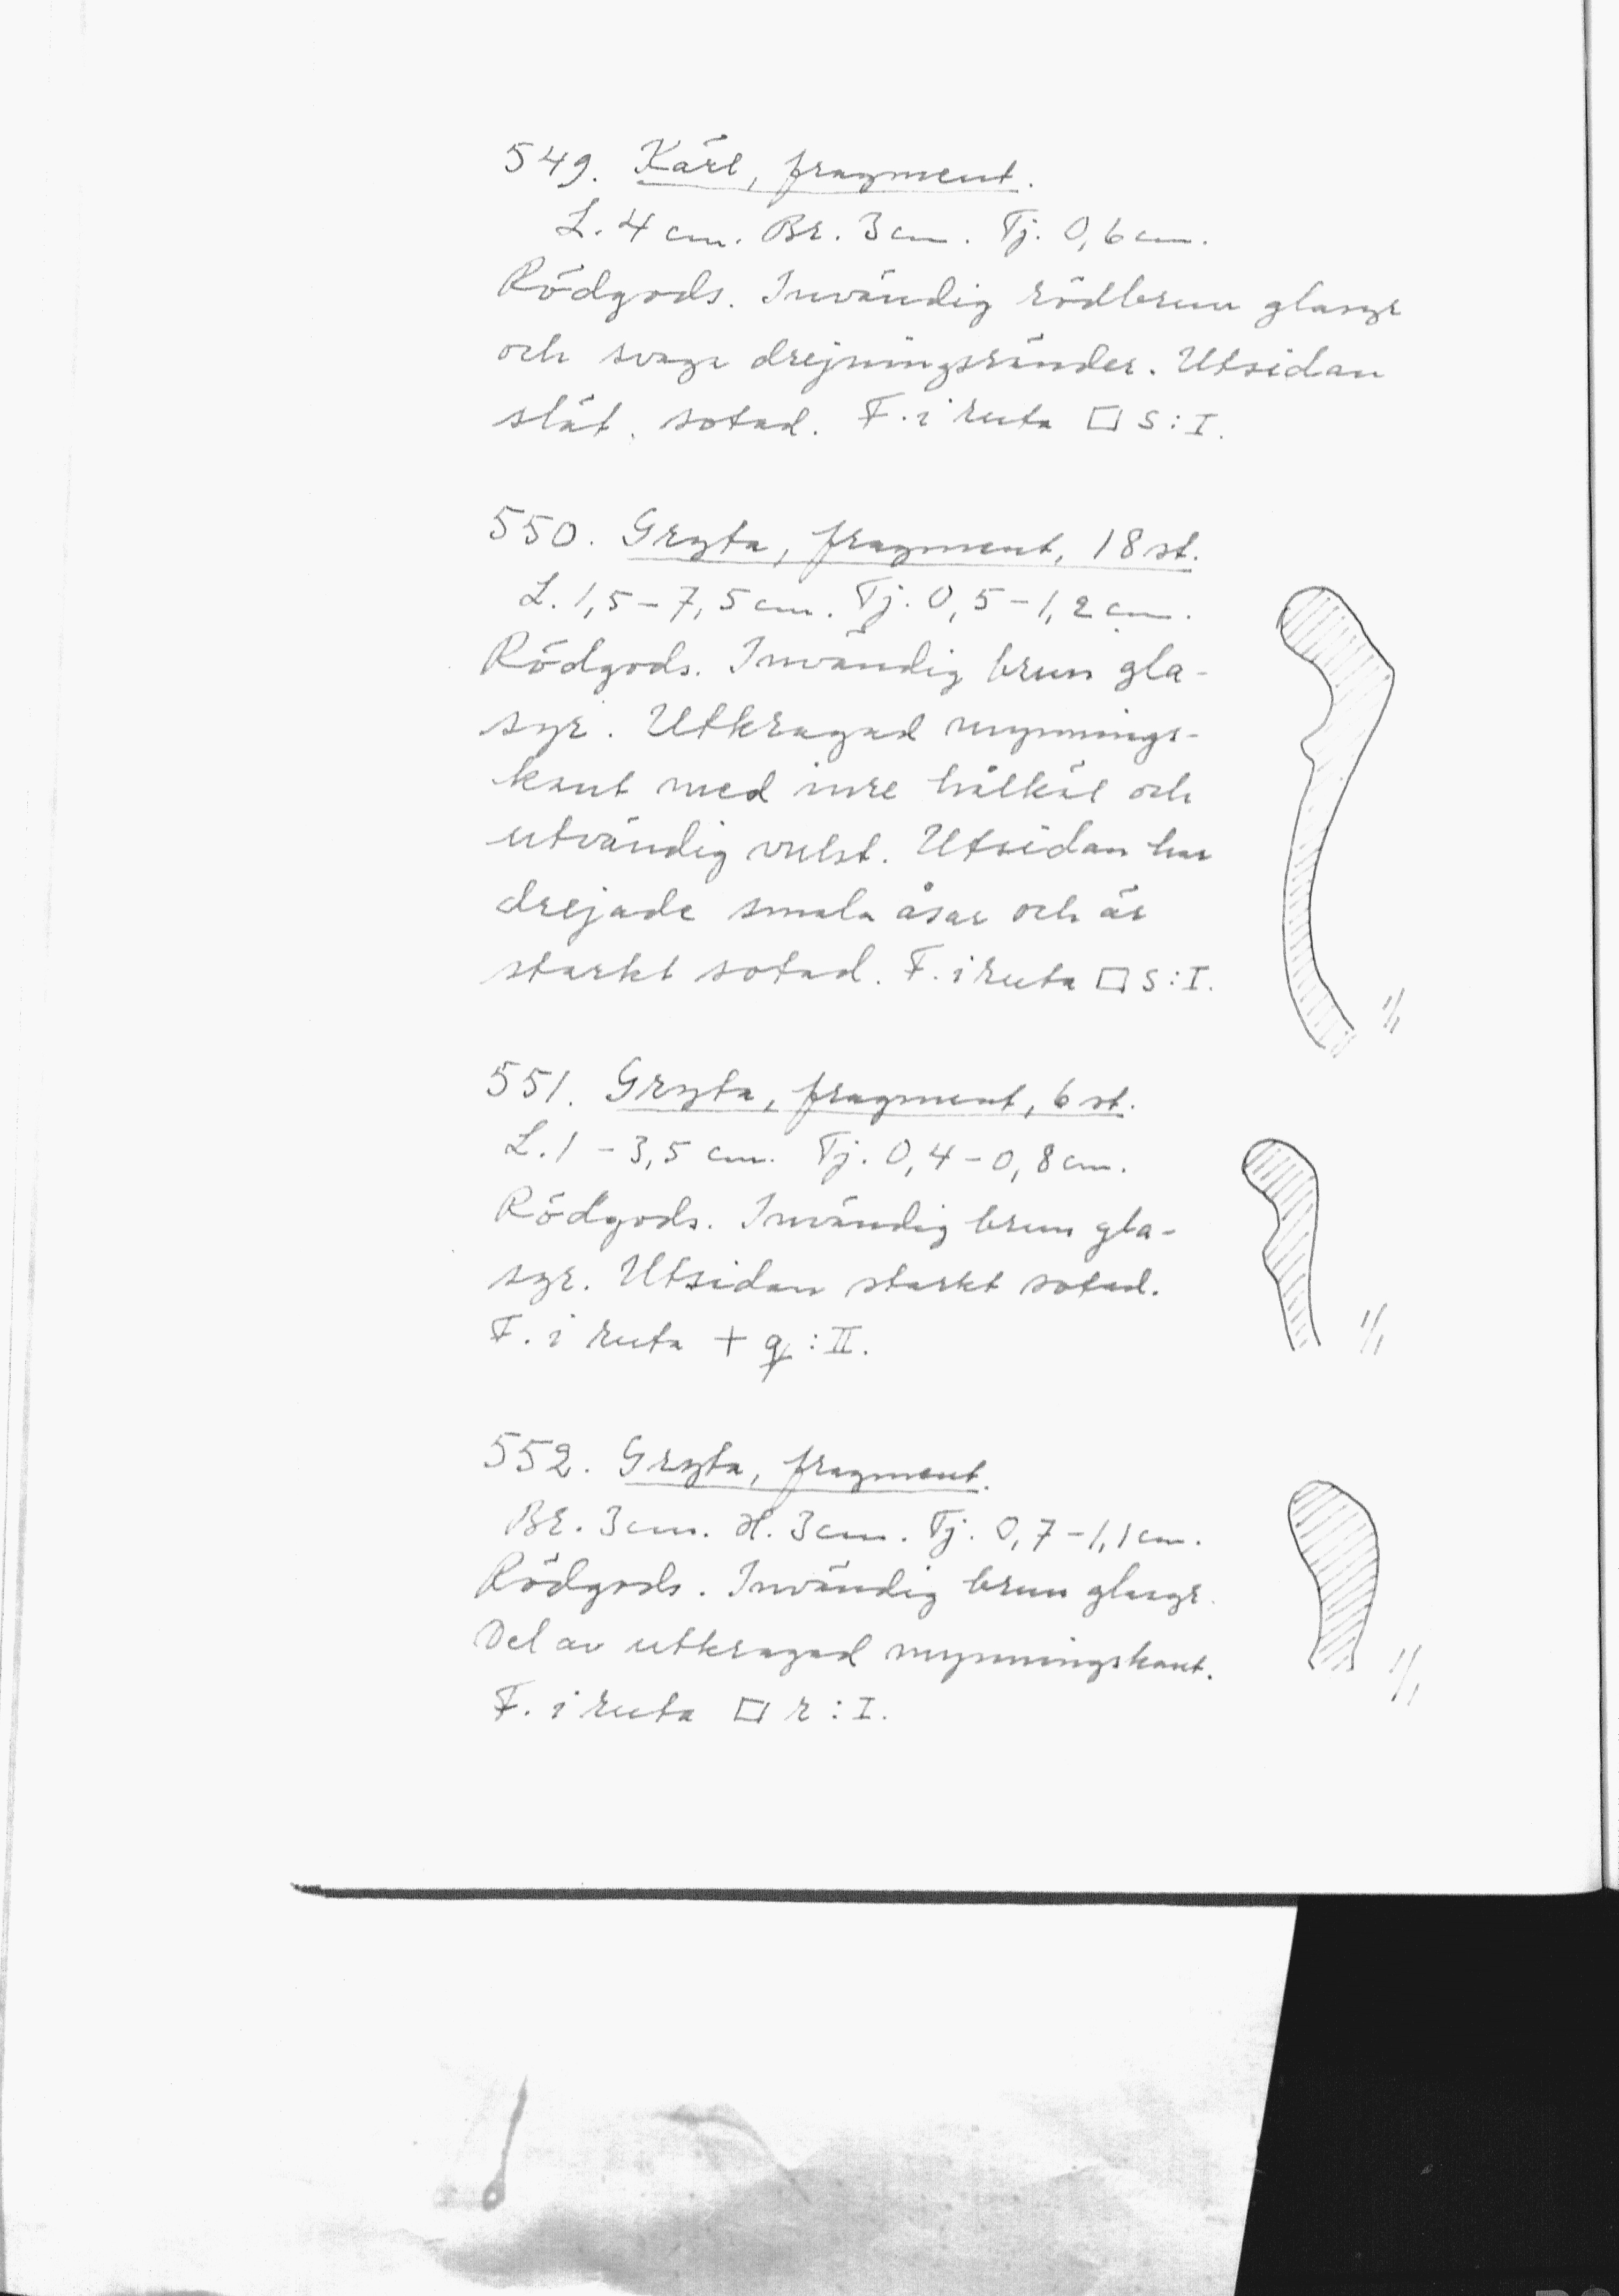 549. Kärl, fragment.
L. 4 cm. Br. 3 cm. Tj. 0,6 cm.
Rödgods. Invändig rödbrun glasyr
och svaga drejningsränder. Utsidan
slät, sotad. F. i ruta □ s:I.
550. Gryta, fragment, 18 st.
L. 1,5-7,5 cm. Tj. 0,5-1,2 cm.
Rödgods. Invändig brun gla-
syr. Utkragad mynnings-
kant med inre hålkäl och
utvändig vulst. Utsidan har
drejade smala åsar och är
starkt sotad. F. i ruta □ s:I.
1/1
551. Gryta, fragment, 6 st.
L. 1-3,5 cm. Tj. 0,4-0,8 cm.
Rödgods. Invändig brun gla-
syr. Utsidan starkt sotad.
F. i ruta + q:II.
1/1
552. Gryta, fragment.
Br. 3 cm. H. 3 cm. Tj. 0,7-1,1 cm.
Rödgods. Invändig brun glasyr.
Del av utkragad mynningskant.
F. i ruta □ r:I.
1/1